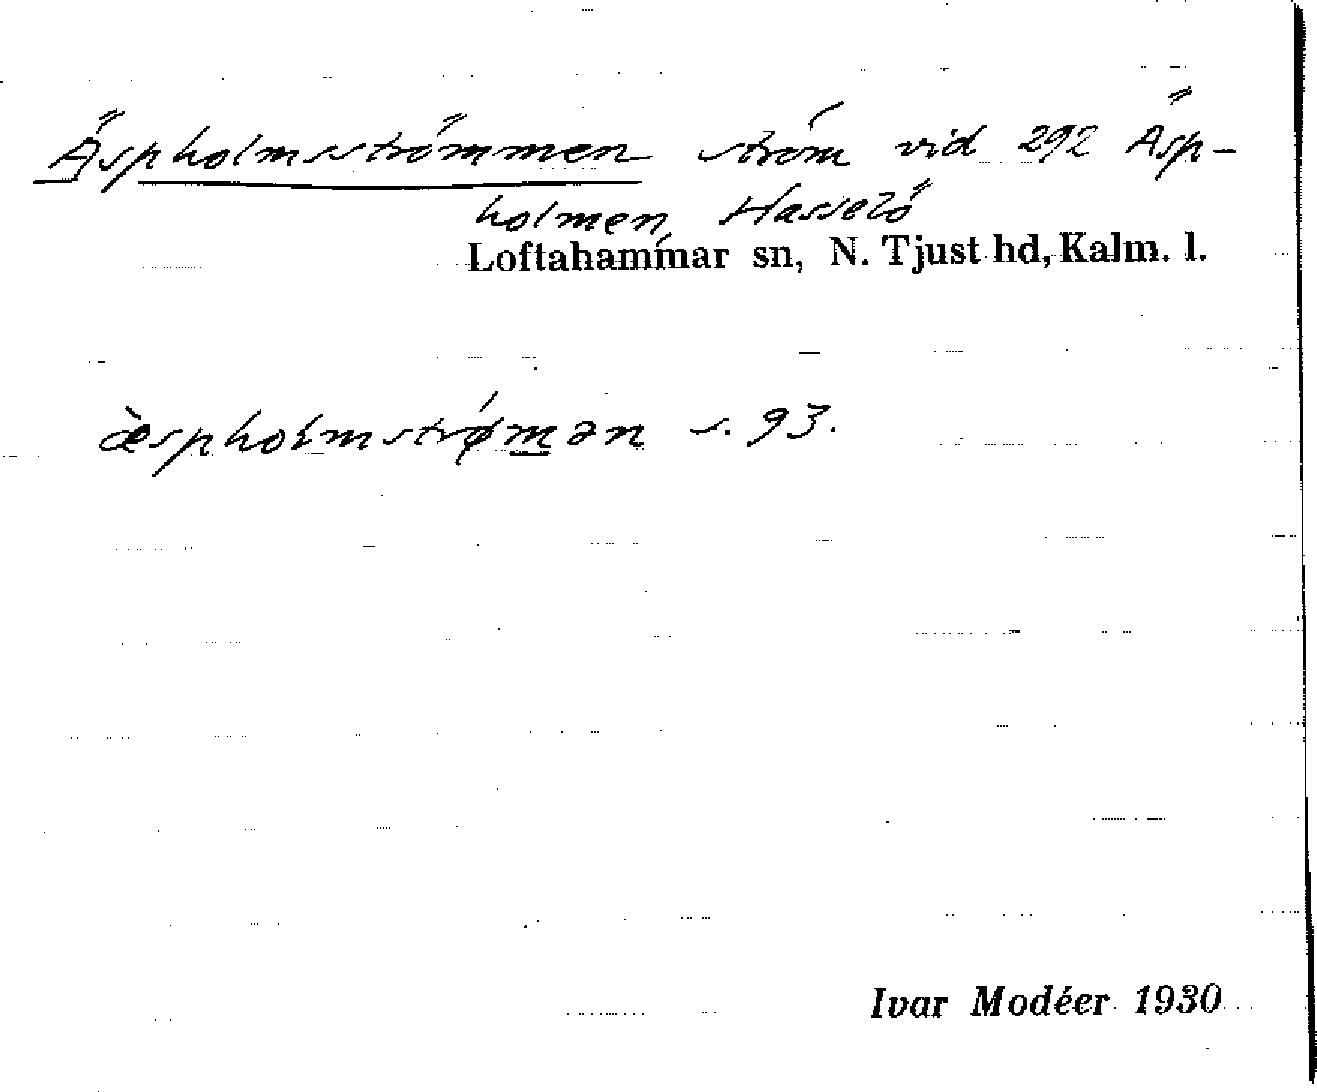 Äspholmsströmmen ström vid 292 Äsp-
holmen, Hasselö
Loftahammar sn, N. Tjust hd, Kalm. l.
æ̀spholmstrǿm̲ən s. 93.
Ivar Modéer 1930